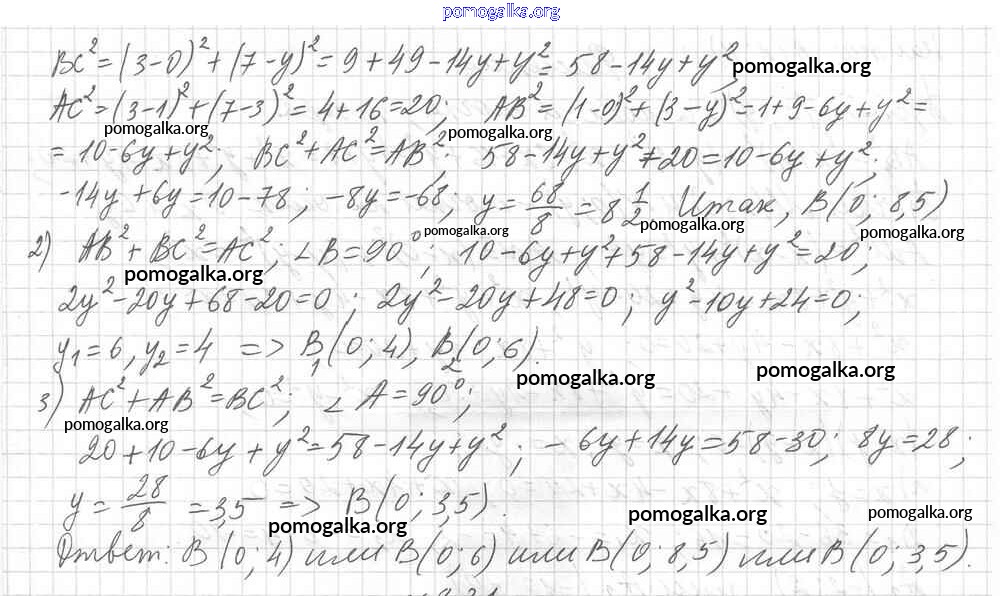 pomogalka.org
BC² = (3-0)² + (7-y)² = 9 + 49 - 14y + y² = 58 - 14y + y²
pomogalka.org
AC² = (3-1)² + (7-3)² = 4 + 16 = 20; AB² = (1-0)² + (3-y)² = 1 + 9 - 6y + y² =
pomogalka.org pomogalka.org
= 10 - 6y + y²; BC² + AC² = AB²; 58 - 14y + y² + 20 = 10 - 6y + y²;
-14y + 6y = 10 - 78; -8y = -68; y = 68/8 = 8 1/2 Итак, B(0; 8,5)
pomogalka.org pomogalka.org
2) AB² + BC² = AC²; ∠B = 90°; 10 - 6y + y² + 58 - 14y + y² = 20;
pomogalka.org
2y² - 20y + 68 - 20 = 0; 2y² - 20y + 48 = 0; y² - 10y + 24 = 0;
y₁ = 6, y₂ = 4 => B₁(0; 4), B₂(0; 6).
pomogalka.org pomogalka.org
3) AC² + AB² = BC²; ∠A = 90°;
pomogalka.org
20 + 10 - 6y + y² = 58 - 14y + y²; -6y + 14y = 58 - 30; 8y = 28;
y = 28/8 = 3,5 => B(0; 3,5).
pomogalka.org pomogalka.org pomogalka.org
Ответ: B(0; 4) или B(0; 6) или B(0; 8,5) или B(0; 3,5).